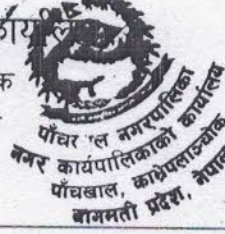 क
पाँचखाल नगरपालिका
नगर कार्यपालिकाको कार्यालय
पाँचखाल, काभ्रेपलाञ्चोक
बागमती प्रदेश, नेपाल